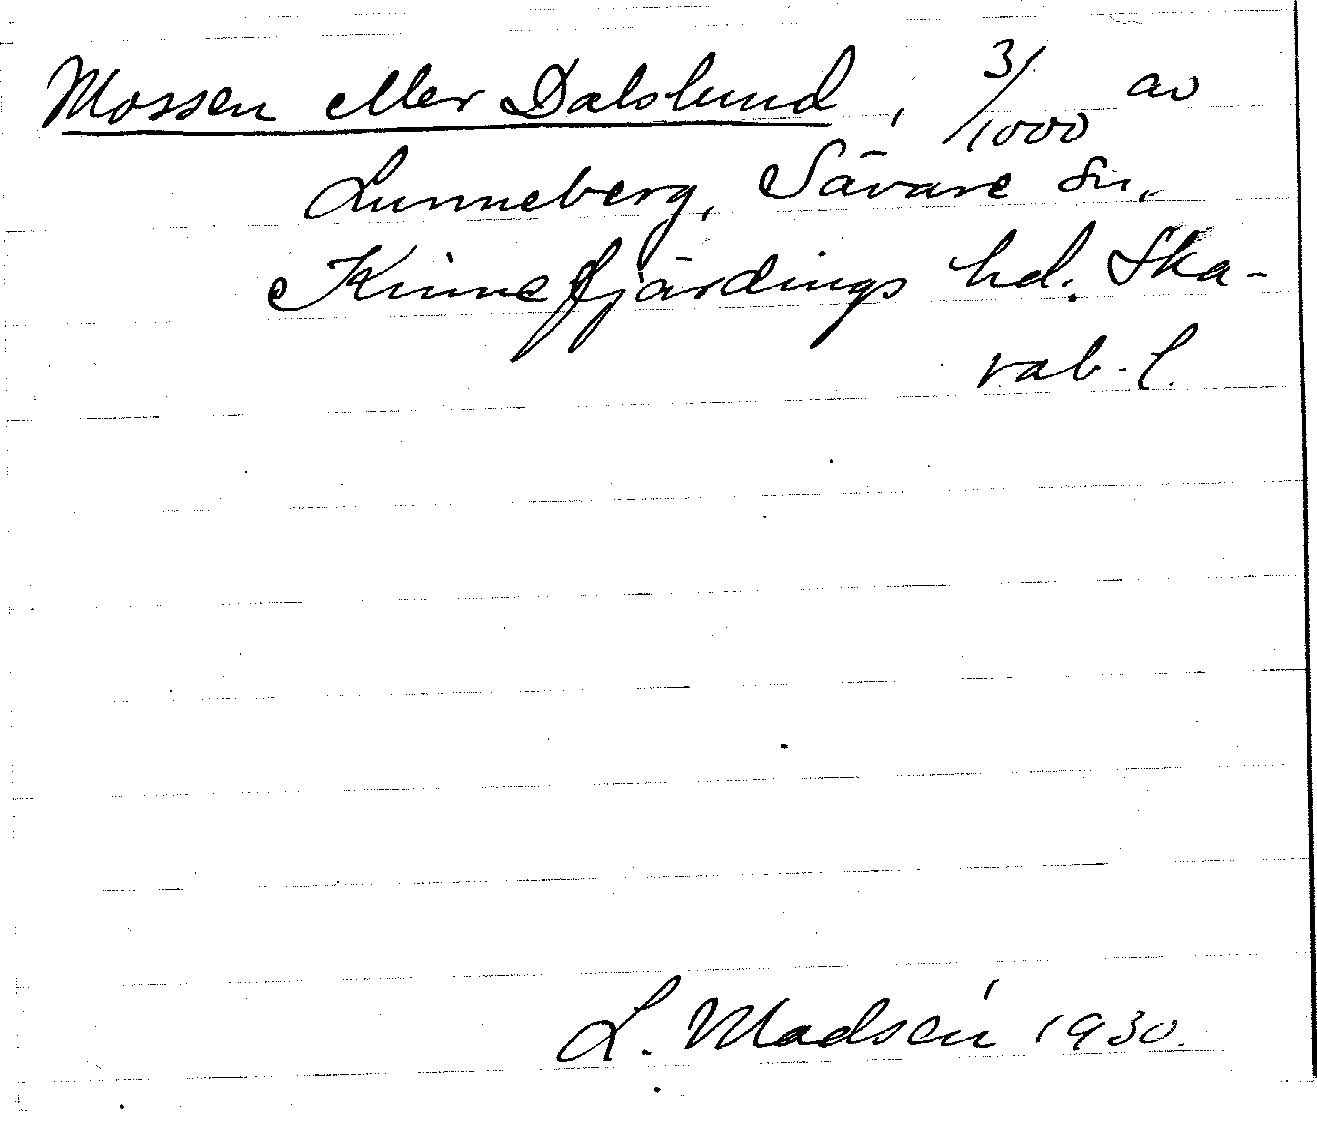 Mossen eller Dalslund, 3/1000 av
Lunneberg, Sävare sn,
Kinnefjärdings hd. Ska-
rab. l.
L. Madsén 1930.